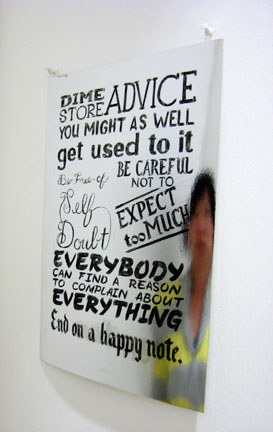 DIME STORE ADVICE
YOU MIGHT AS WELL
get used to it
Be Free of Self Doubt
BE CAREFUL
NOT TO
EXPECT
too MUCH
EVERYBODY
CAN FIND A REASON
TO COMPLAIN ABOUT
EVERYTHING
End on a happy note.